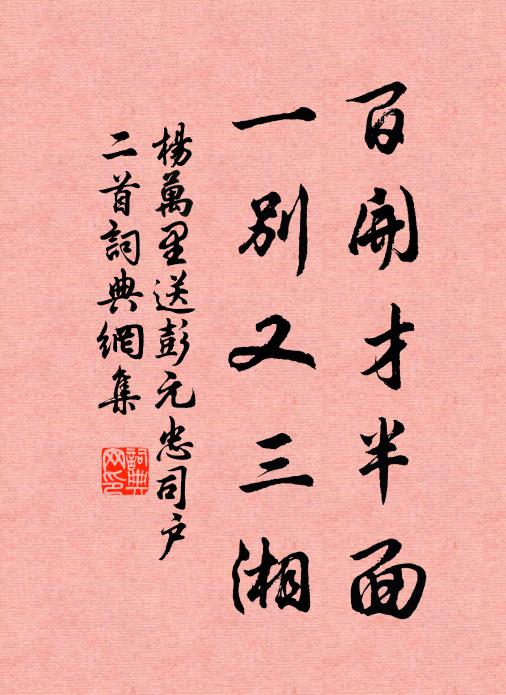 百開才半面
一別又三湘
楊萬里送彭元忠司户
二首詞典網集
詞典網印